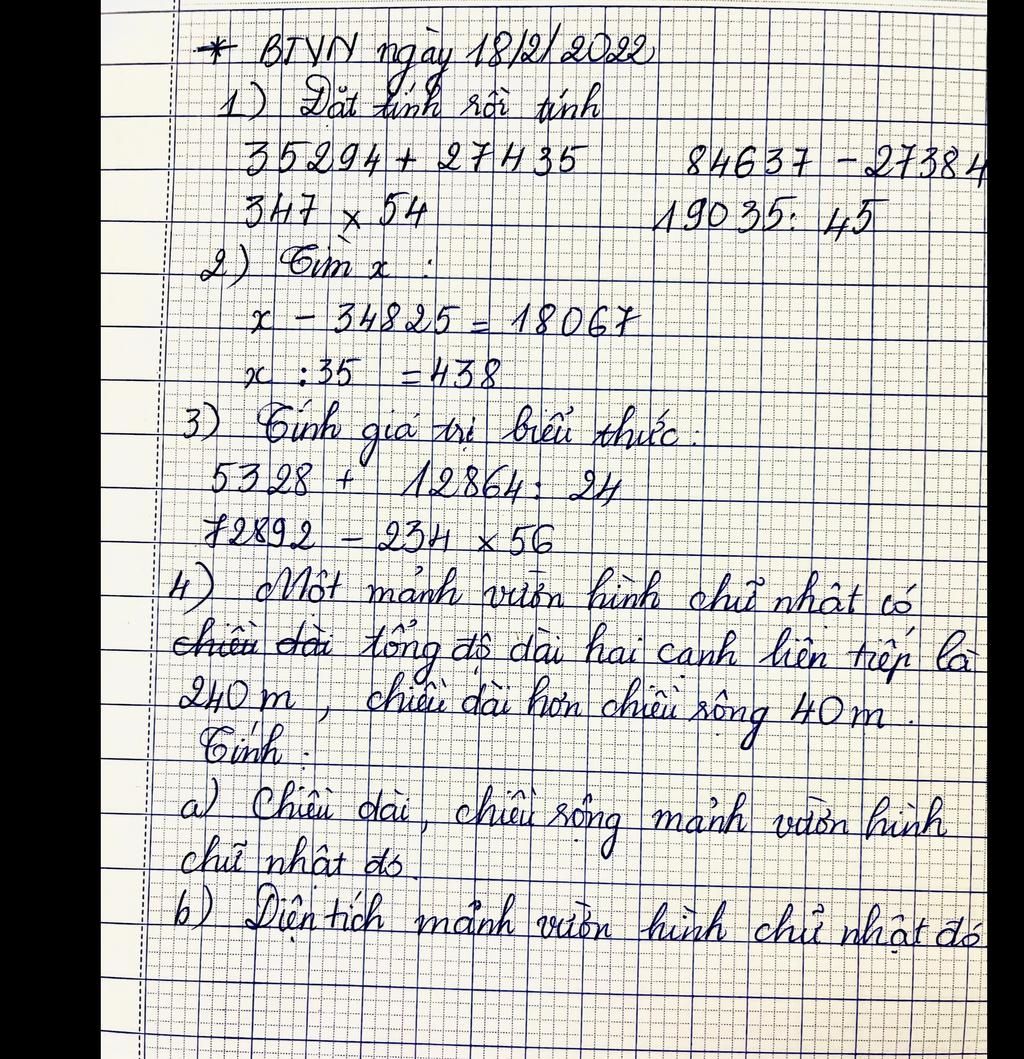 * BTVN ngày 18/2/2022
1) Đặt tính rồi tính
35294 + 27435 84637 - 27384
347 x 54 19035 : 45
2) Tìm x :
x - 34825 = 18067
x : 35 = 438
3) Tính giá trị biểu thức :
5328 + 12864 : 24
72892 - 234 x 56
4) Một mảnh vườn hình chữ nhật có
chiều dài tổng độ dài hai cạnh liên tiếp là
240 m , chiều dài hơn chiều rộng 40 m .
Tính :
a) Chiều dài, chiều rộng mảnh vườn hình
chữ nhật đó.
b) Diện tích mảnh vườn hình chữ nhật đó